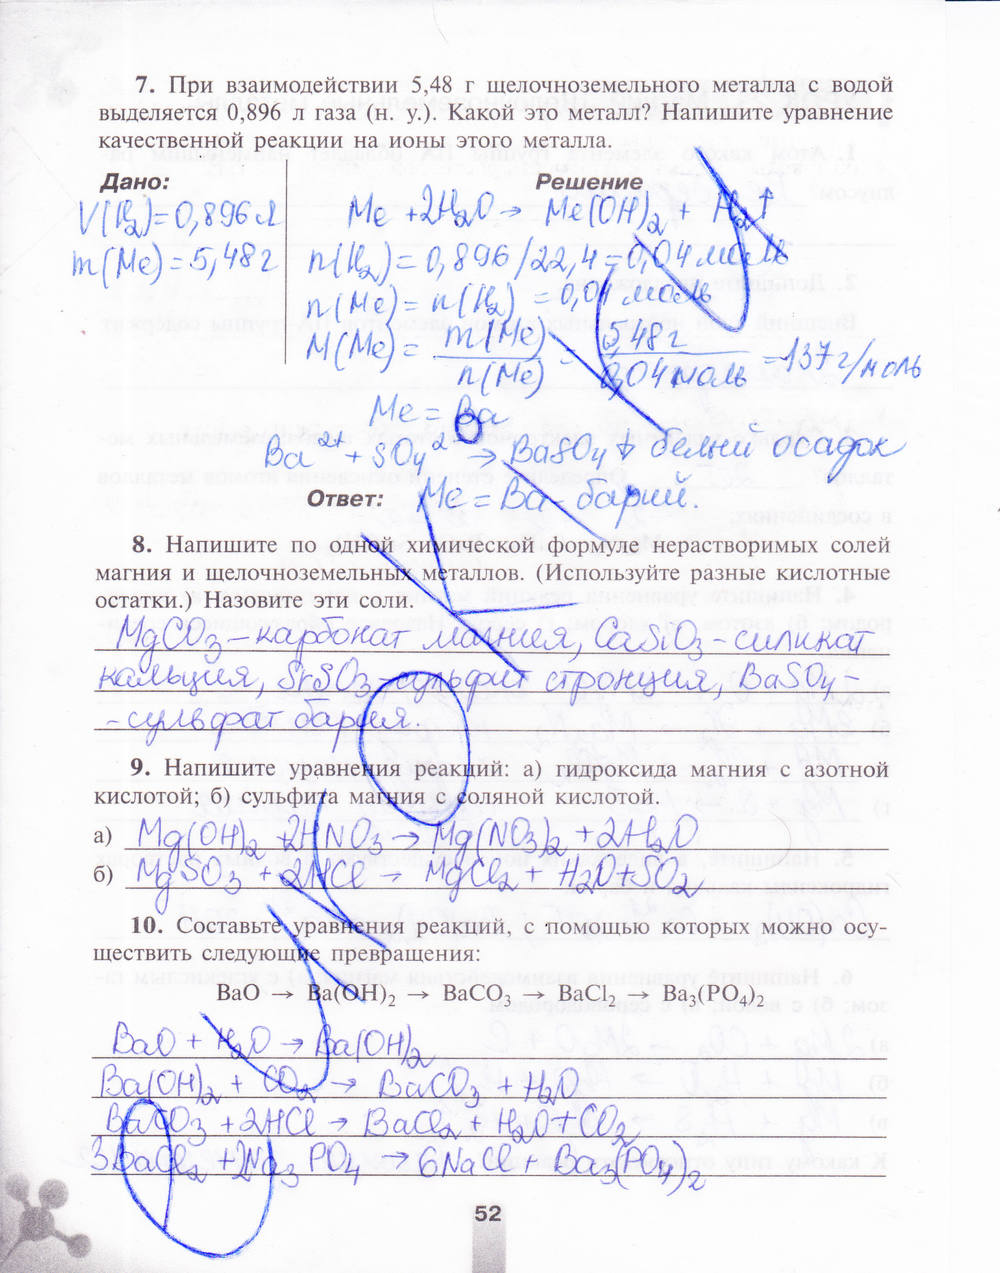 7. При взаимодействии 5,48 г щелочноземельного металла с водой
выделяется 0,896 л газа (н. у.). Какой это металл? Напишите уравнение
качественной реакции на ионы этого металла.
Дано:
V(H₂)=0,896 л
m(Me)=5,48 г
Решение
Me + 2H₂O → Me(OH)₂ + H₂↑
n(H₂) = 0,896/22,4 = 0,04 моль
n(Me) = n(H₂) = 0,04 моль
M(Me) = m(Me)/n(Me) = 5,48 г/0,04 моль = 137 г/моль
Me = Ba
Ba²⁺ + SO₄²⁻ → BaSO₄↓ белый осадок
Ответ: Me = Ba - барий.
8. Напишите по одной химической формуле нерастворимых солей
магния и щелочноземельных металлов. (Используйте разные кислотные
остатки.) Назовите эти соли.
MgCO₃ – карбонат магния, CaSiO₃ – силикат
кальция, SrSO₃ – сульфит стронция, BaSO₄ –
- сульфат бария.
9. Напишите уравнения реакций: а) гидроксида магния с азотной
кислотой; б) сульфита магния с соляной кислотой.
а) Mg(OH)₂ + 2HNO₃ → Mg(NO₃)₂ + 2H₂O
б) MgSO₃ + 2HCl → MgCl₂ + H₂O + SO₂
10. Составьте уравнения реакций, с помощью которых можно осу-
ществить следующие превращения:
BaO → Ba(OH)₂ → BaCO₃ → BaCl₂ → Ba₃(PO₄)₂
BaO + H₂O → Ba(OH)₂
Ba(OH)₂ + CO₂ → BaCO₃ + H₂O
BaCO₃ + 2HCl → BaCl₂ + H₂O + CO₂
3BaCl₂ + 2Na₃PO₄ → 6NaCl + Ba₃(PO₄)₂
52